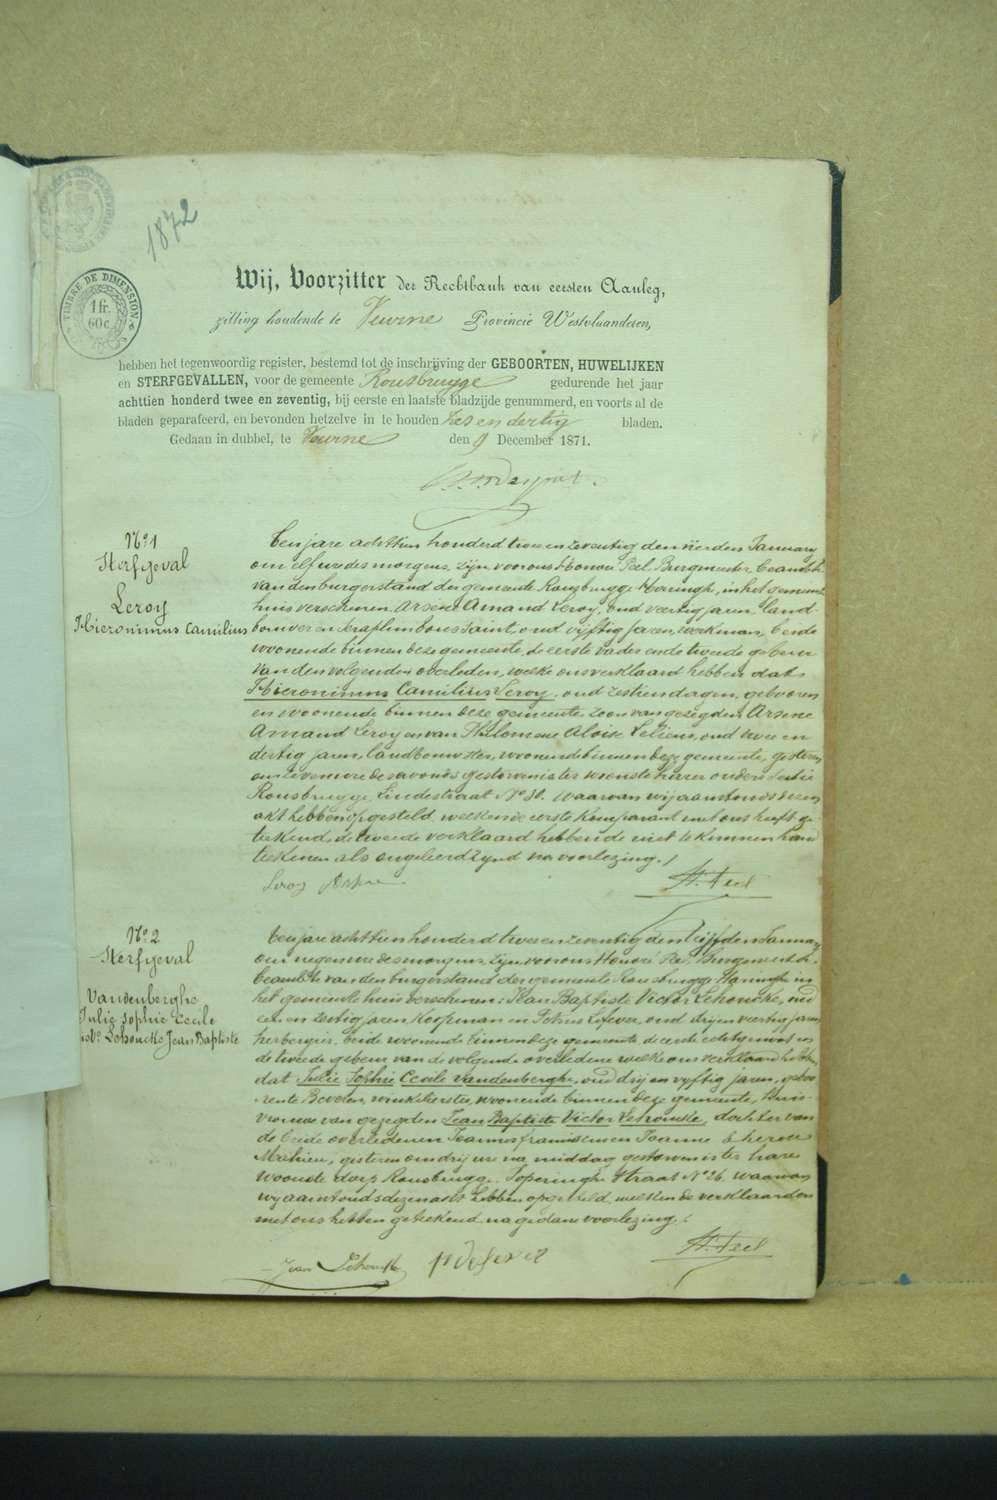 1872
TIMBRE DE DIMENSION
1 fr.
60 c.
Wij, Voorzitter der Rechtbank van eersten Aanleg,
zitting houdende te Veurne Provincie Westvlaanderen,
hebben het tegenwoordig register, bestemd tot de inschrijving der GEBOORTEN, HUWELIJKEN
en STERFGEVALLEN, voor de gemeente Rousbrugge gedurende het jaar
achttien honderd twee en zeventig, bij eerste en laatste bladzijde genummerd, en voorts al de
bladen geparafeerd, en bevonden hetzelve in te houden zes en dertig bladen.
Gedaan in dubbel, te Veurne den 9 December 1871.
No 1
Sterfgeval
Leroy
Hieronimus Camilius
Ten jare achttien honderd twee en zeventig den vierden January
om elf ure des morgens, zijn voor ons Honoré Peel Burgmeester, beambte
van den burgerstand der gemeente Rousbrugge Haringhe, in het gemeente
huis verschenen Arsene Amand Leroy, oud veertig jaren, land-
bouwer en Seraphin Toussaint, oud vijftig jaren, werkman, beide
woonende binnen deze gemeente, de eerste vader ende tweede gebuur
van den volgenden overleden, welke ons verklaard hebben dat
Hieronimus Camilius Leroy, oud zestien dagen, geboren
en woonende binnen deze gemeente, zoon van gezegden Arsene
Amand Leroy en van Philomene Aloise Leliene, oud twee en
dertig jaren, landbouwster, woonende binnen deze gemeente, gisteren
om zeven ure des avonds gestorven is ter woonste harer ouders
Rousbrugge, Lindestraat No 30. waarvan wij aanstonds dezen
akt hebben opgesteld, welken de eerste komparant met ons heeft ge-
teekend, de tweede verklaard hebbende niet te kunnen hand
teekenen als ongeleerd zynd na voorlezing./
Leroy Arsene
H. Peel
No 2
Sterfgeval
Vandenberghe
Julie Sophie Cecile
Lehoucke Jean Baptiste
Ten jare achttien honderd twee en zeventig den vijfden January
om negen ure des morgens, zijn voor ons Honoré Peel Burgmeester
beambte van den burgerstand der gemeente Rousbrugge Haringhe in
het gemeente huis verschenen: Jean Baptiste Victor Lehoucke, oud
een en zestig jaren Koopman en Petrus Lefever, oud drij en veertig jaren
herbergier, beide woonende binnen deze gemeente de eerste echtgenoot en
de tweede gebuur van de volgende overledene welke ons verklaard hebben,
dat Julie Sophie Cecile Vandenberghe, oud drij en vyftig jaren, gebo
rente Beveren, winkelierster, woonende binnen deze gemeente, Huis-
vrouwe van gezegden Jean Baptiste Victor Lehoucke, dochter van
de beide overledenen Joannes franciscus en Joanne
Mahieu, gisteren om drij ure na middag gestorven is ter hare
woonste dorp Rousbrugge, Poperinghe straat No 26. waarvan
wy aanstonds dezen akt hebben opgesteld, welken de verklaarders
met ons hebben geteekend, na gedane voorlezing./
Jean Lehoucke
P Lefever
H. Peel